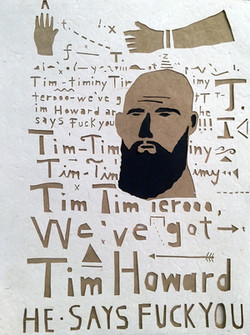 Tim-timiny Tim
terooo-we've g
im Howard ar
says Fuck you
Tim-Tim iny
Tim-Tim imy
Tim Timierooo,
We've got
Tim Howard
HE·SAYS FUCKYOU